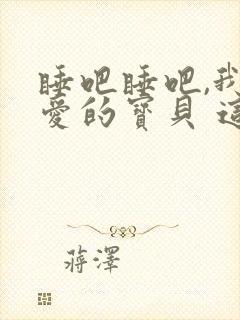 睡吧睡吧,我
愛的寶貝 這
蔣澤